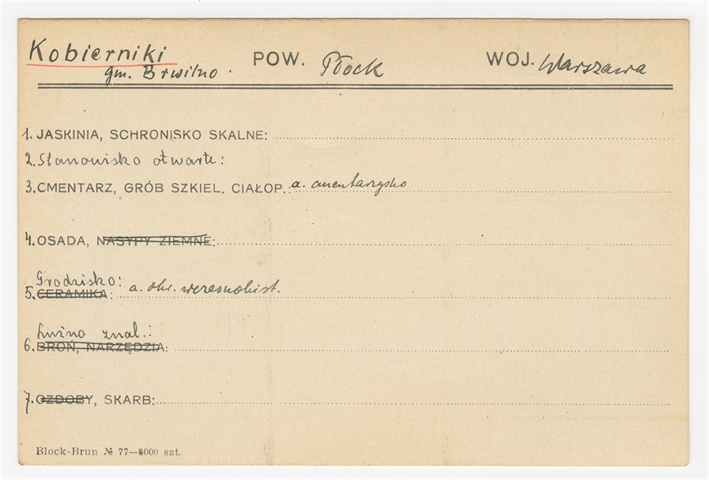 Kobierniki POW. Płock WOJ. Warszawa
gm. Brwilno.
1. JASKINIA, SCHRONISKO SKALNE:
2. Stanowisko otwarte:
3. CMENTARZ, GRÓB SZKIEL. CIAŁOP. a. cmentarzysko
4. OSADA, NASYPY ZIEMNE:
Grodzisko:
5. CERAMIKA: a. okr. wczesnohist.
Luźno znal.:
6. BROŃ, NARZĘDZIA:
7. OZDOBY, SKARB:
Block-Brun № 77—8000 szt.